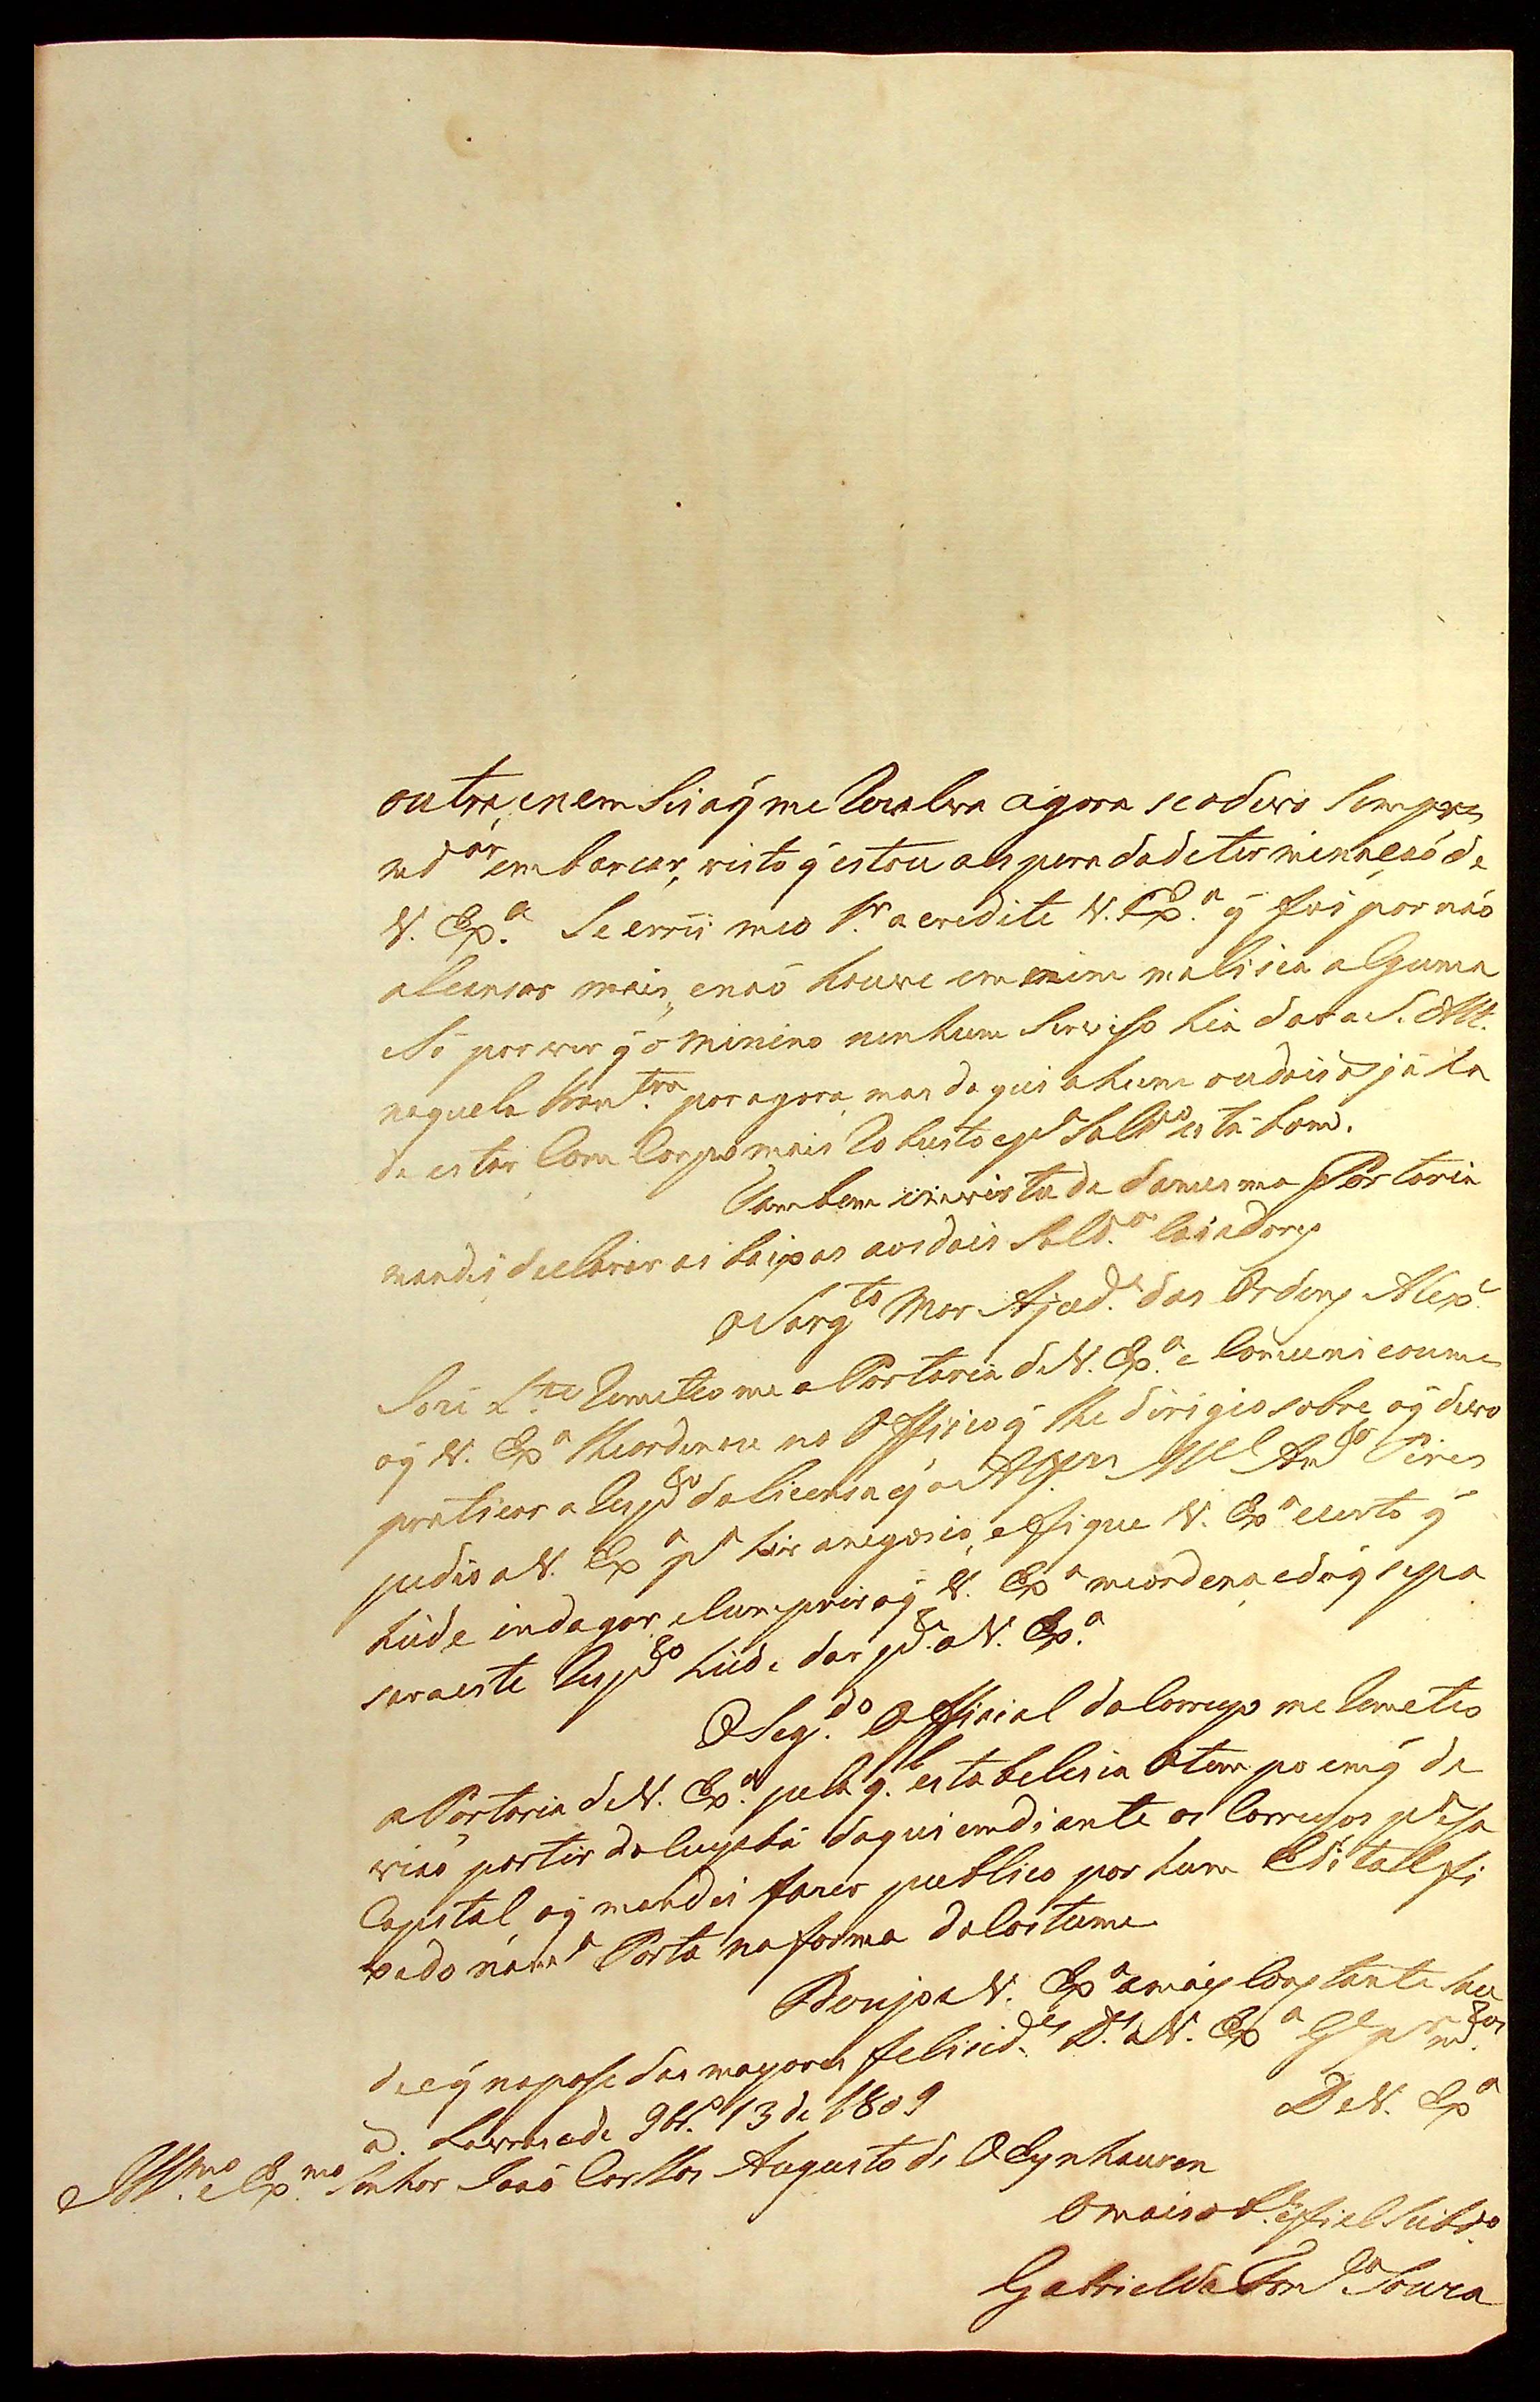 outra, enem Sei aq̃ me Rezalva agora seodevo Sempre
mdar embarcar, visto q̃ estou aespera dadeterminaçaõ de
V. Exa. Se errei meo Sr. acredite V. Exa. q̃ foi por naõ
alcansar mais, enaõ houve em mim malisia alguma
eSó por ver q̃ o minino nenhum Serviso hia dar a S. Alt.
naquela Frontra. por agora, mas daqui ahum oudois as já ha
de estar Com Corpo mais Robusto epa Saldo está bom.
Tambem emvertude damesma Portaria
mandei declarar as baixas aosdois Sold.os Casadores
OSargto Mor Ajud.e das Ordens Alexe.
Jozé Lte Remeteo me a Portaria deV. Exa. e Comunicoume
oq̃ V. Exa lheordenou no Officio q̃ lhe dirigio sobre oq̃ devo
praticar a Respto daLicensa q̃ o Alfes Mel Anto Pires
pedio aV. Exa pa hir anegocio, efique V. Exa certo q̃
heide indagar, eCumprir oq̃ V. Exa meordena, edoq̃ sepa
sar aeste Respto heide dar pte. aV. Exa.
OSeg.do Official doCorreyo me Remeteo
aPortaria deV. Exa. pela q.l estabelesia Otempo emq̃ de
viaõ partir doCuyabá daqui emdiante os Correyos pa esa
Capital, oq̃ mandei fazer publico por hum Editalfi
xado nama Porta naforma doCostume
Dezejo aV. Exa amais Constante Sau
de eq̃ napose das mayores felicid.es Ds. aV. Exa Ge ms. ans
a. Lavras ede 9br.o 13 de 1809
DeV. Exa
Illmo. e Exmo. Senhor Joaõ Carllos Augusto de OEynhausen
Omais ob.e efiel Subdo.
Gabriel da Fonca Souza